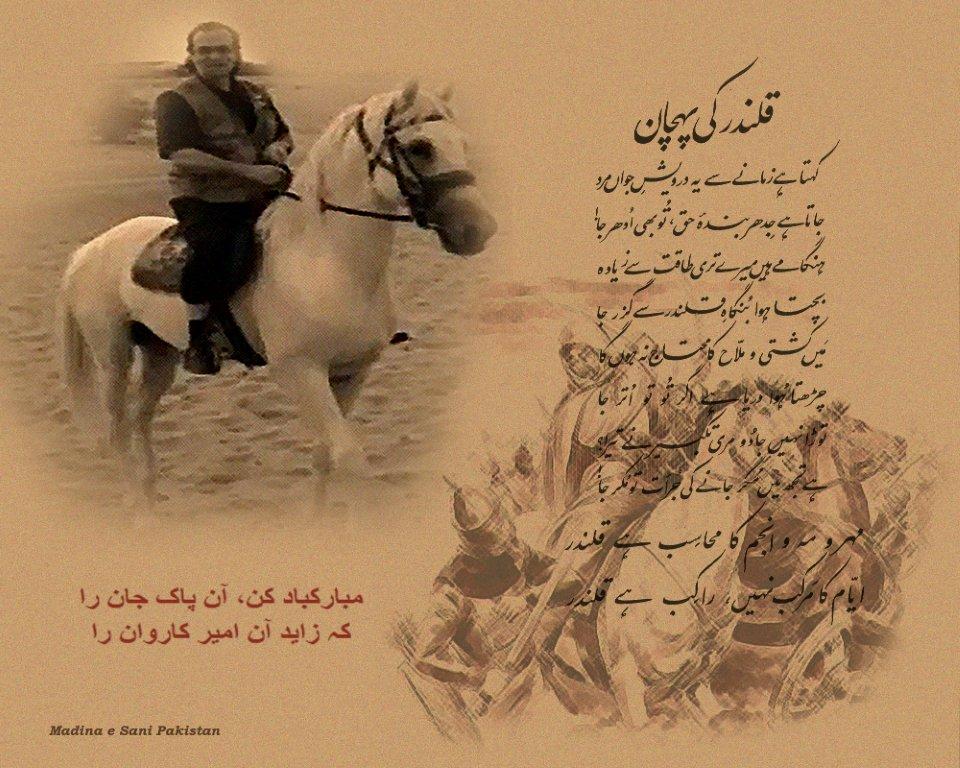 قلندر کی پہچان
کہتا ہے زمانے سے یہ درویشِ جواں مرد
جاتا ہے جدھر بندۂ حق، تُو بھی اُدھر جا!
ہنگامے ہیں میرے تری طاقت سے زیادہ
بچتا ہوا بُنگاہِ قلندر سے گزر جا
مَیں کشتی و ملّاح کا محتاج نہ ہوں گا
چڑھتا ہُوا دریا ہے اگر تُو تو اُتر جا
توڑا نہیں جادُو مری تکبیر نے تیرا؟
ہے تجھ میں مُکر جانے کی جرأت تو مُکر جا!
مہر و مہ و انجم کا محاسِب ہے قلندر
ایّام کا مَرکب نہیں، راکِب ہے قلندر
مبارکباد کن، آن پاک جان را
که زاید آن امیر کاروان را
Madina e Sani Pakistan